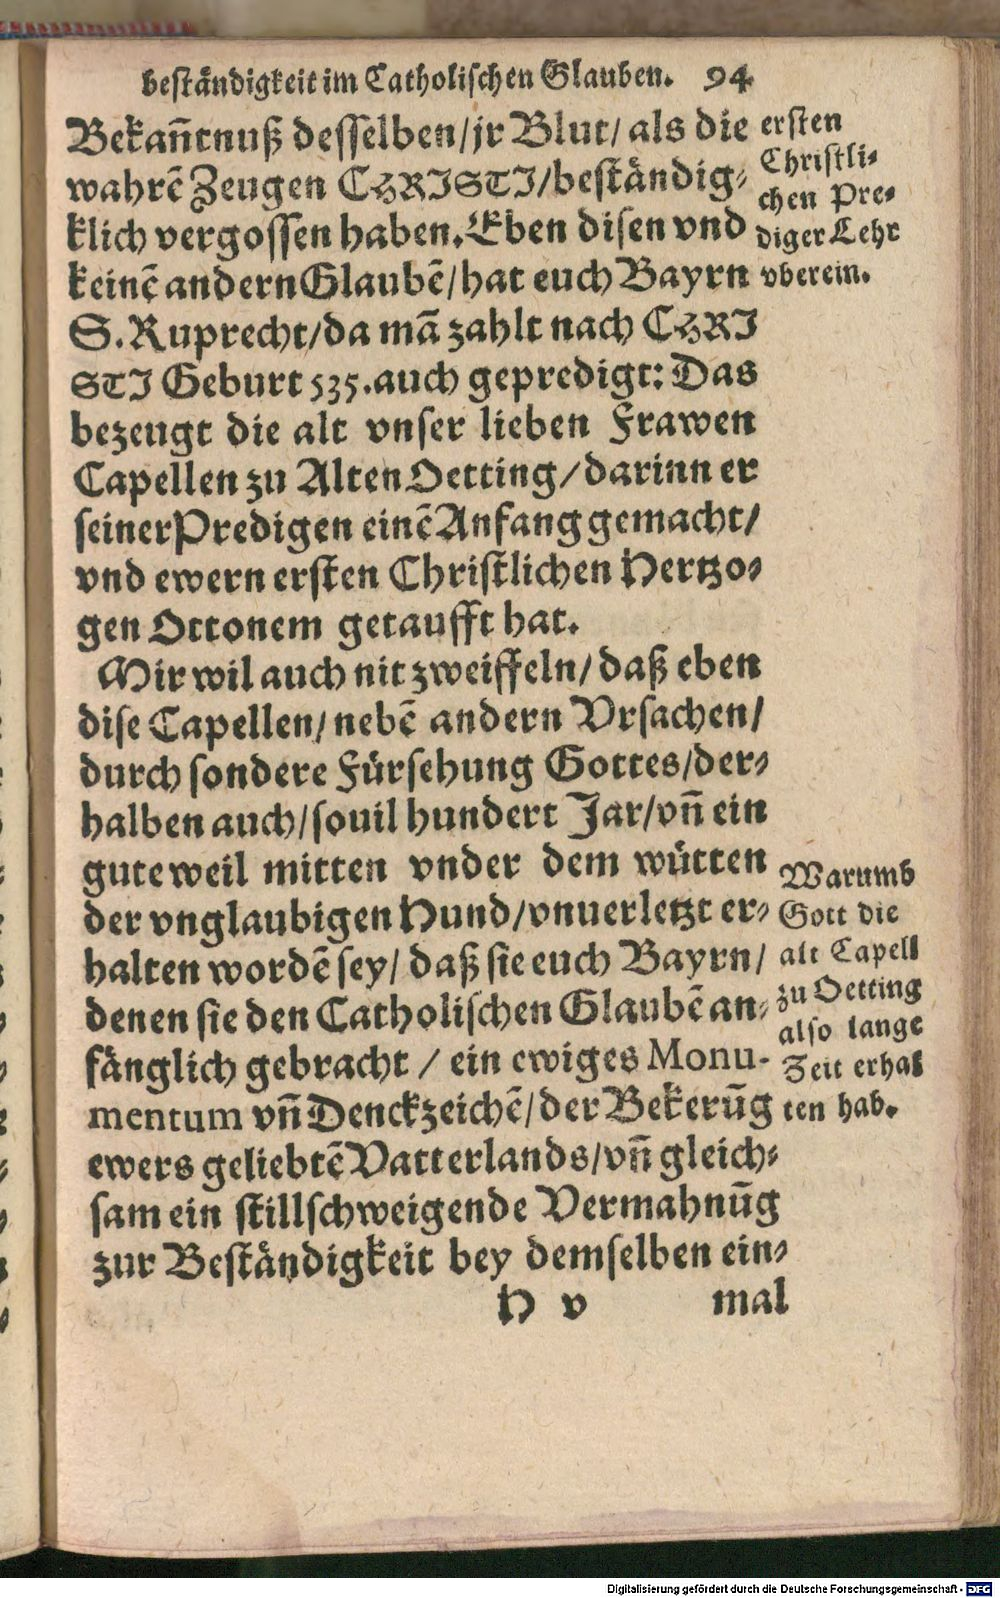 beständigkeit im Catholischen Glauben. 94
Bekañtnuß desselben/jr Blut/ als die
wahrẽ Zeugen CHRISTI/beständig-
klich vergossen haben. Eben disen vnd
keinẽ andern Glaubẽ/hat euch Bayrn
S. Ruprecht/da mã zahlt nach CHRI
STI Geburt 535. auch gepredigt: Das
bezeugt die alt vnser lieben Frawen
Capellen zu Alten Oetting/darinn er
seiner Predigen einẽ Anfang gemacht/
vnd ewern ersten Christlichen Hertzo-
gen Ottonem getaufft hat.
Mir wil auch nit zweiffeln/daß eben
dise Capellen/nebẽ andern Vrsachen/
durch sondere Fürsehung Gottes/der-
halben auch/souil hundert Jar/vñ ein
gute weil mitten vnder dem wütten
der vnglaubigen Hund/vnuerletzt er-
halten wordẽ sey/ daß sie euch Bayrn/
denen sie den Catholischen Glaubẽ an-
fänglich gebracht / ein ewiges Monu-
mentum vñ Denckzeichẽ/der Bekerũg
ewers geliebtẽ Vatterlands/vñ gleich-
sam ein stillschweigende Vermahnũg
zur Beständigkeit bey demselben ein-
H v mal
ersten
Christli-
chen Pre-
diger Lehr
vberein.
Warumb
Gott die
alt Capell
zu Oetting
also lange
Zeit erhal
ten hab.
Digitalisierung gefördert durch die Deutsche Forschungsgemeinschaft - DFG